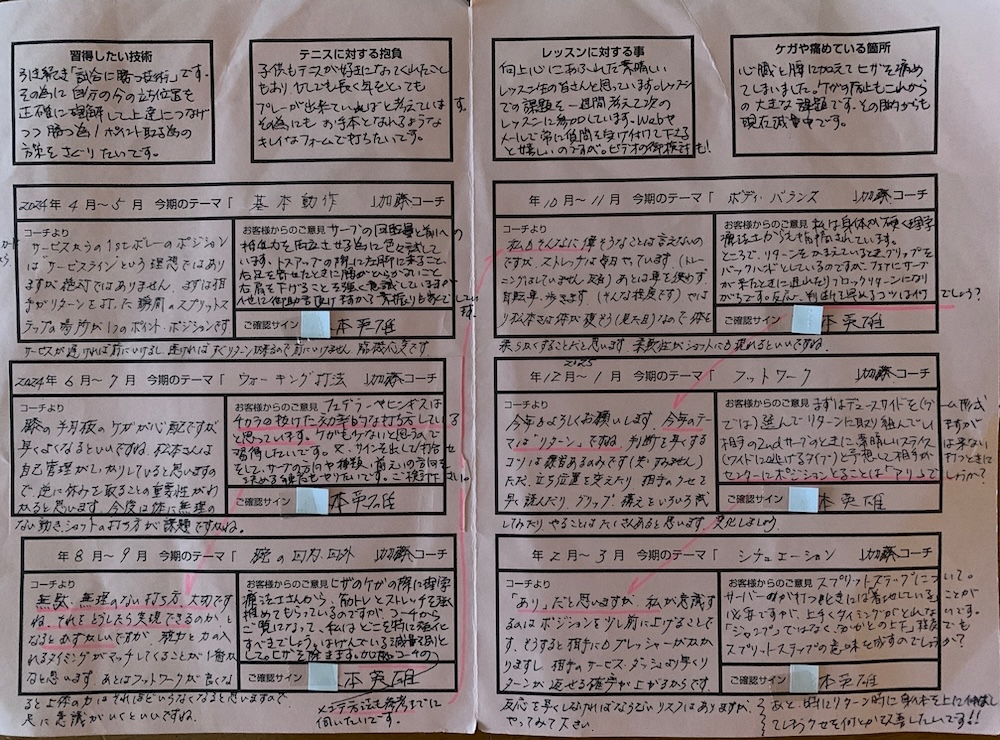 習得したい技術
引き続き「試合に勝つ技術」です。
その為に自分の今の立ち位置を
正確に理解して上達につなげ
つつ勝つ為/ポイント取る為の
方策をさぐりたいです。
テニスに対する抱負
子供もテニスが好きになってくれたこと
もあり、少しでも長く年をとっても
プレーが出来ていればと考えています。
その為にも お手本となれるような
キレイなフォームで打ちたいです。
レッスンに対する事
向上心にあふれた素晴しい
レッスン生の皆さんと思っています。レッスン
での課題を一週間考えて次の
レッスンに参加しています。Webや
メールで常に質問を受け付けて下さる
と嬉しいのですが。ビデオの御検討も!
ケガや痛めている箇所
心臓と腰に加えてヒザを痛め
てしまいました。ケガの防止もこれから
の大きな課題です。その助けからも
現在減量中です。
2024年 4月~5月 今期のテーマ「 基本動作 」加藤コーチ
コーチより
サービスからの1stボレーのポジション
は"サービスライン"という理想ではあり
ますが絶対ではありません。まずは相
手がリターンを打った瞬間のスプリットス
テップの場所が1つのポイント・ポジションです
サービスが速ければ前にいけるし、遅ければすぐリターンが来るので前にいけません。臨機応変です。
お客様からのご意見 サーブの回転量と前への
推進力を両立させる為に色々試して
います。トスアップの際に左脚に乗ること、
右足を寄せたときに腰が
右肩を下げることを強く意識していますが
他に御助言頂けますか?素振りも家でしてい
ます。
ご確認サイン 本英雄
2024年 6月~7月 今期のテーマ「 ウォーキング打法 」加藤コーチ
コーチより
膝の半月板のケガが心配ですが
早くよくなるといいですね。松本さんは
自己管理がしっかりしていると思いますの
で、逆に休みを取ることの重要性がわ
かると思います。今後は体に無理の
ない動き、ショットの打ち方が課題ですかね。
お客様からのご意見 フェデラーやヒンギスは
チカラの抜けた効率的な打ち方している
と思っています。ケガも少ないと思うので
習得したいです。又、サインを出して打合せ
をして、サーブの方向や種類、前衛の方向を
決める練習もやりたいです。ご検討下さい。
ご確認サイン 本英雄
年 8月~9月 今期のテーマ「 腕の内・外 」加藤コーチ
コーチより
無駄、無理のない打ち方、大切です
ね。それをどうしたら実現できるのか、と
なるとむずかしいですが 脱力と力の入
れるタイミングがマッチしてくることが1番か
なと思います。あとはフットワークが良くな
ると上体の力はそれほどいらなくなると思いますので、
足に意識がいくといいですね。
お客様からのご意見 ヒザのケガの際に理学
療法士さんから、筋トレとストレッチを強く
推めてもらっているのですが、コーチから
ご覧になって、私はどこを特に強化
すべきでしょう。はげんでいる減量を別と
してのヒザを除きます。加藤コーチの
メンテ方法も参考までに
伺いたいです。
ご確認サイン 本英雄
年 10月~11月 今期のテーマ「 ボディ・バランス 」加藤コーチ
コーチより
私もそんなに偉そうなことは言えないの
ですが、ストレッチは毎日やっています。(トレー
ニングはしていません、反省) あとは車を使わず、
自転車、歩きます。(そんな程度です) やは
り松本さんは体が硬そう(見た目)なので体を
柔らかくすることだと思います。柔軟性がショットにも現れるといいですね。
お客様からのご意見 私は身体が硬く理学
療法士からも指摘されています。
ところで、リターンをかまえているときグリップを
バックハンドとしているのですが、フォアにサーブ
が来たときに遅れたりブロックリターンになり
がちです。反応、判断を早めるコツは何でしょう?
ご確認サイン 本英雄
2025
年 12月~1月 今期のテーマ「 フットワーク 」加藤コーチ
コーチより
今年もよろしくお願いします。今年のテー
マは"リターン"ですね。判断を早くする
コツは練習あるのみです(笑、すみません)
ただ、立ち位置を変えたり 相手のクセを
早く読んだり、グリップ、構えをいろいろ試
してみたり、やることはたくさんあると思います。変化しましょう。
お客様からのご意見 まずはデュースサイドを(ゲーム形式
では)選んでリターンに取り組んでいますが
相手の2ndサーブのときに素晴しいスライス
(ワイドに逃げるタイプ)と予想して相手が打つときに
センターにポジションとることは「アリ」でしょうか?
ご確認サイン 本英雄
年 2月~3月 今期のテーマ「 シチュエーション 」加藤コーチ
コーチより
「あり」だと思いますが、私が意識す
るのはポジションを少し前に上げることで
す。そうすると相手にもプレッシャーがかか
りますし、相手のサービス・ダッシュより早くリ
ターンが返せる確率が上がるからです。
反応を早くしなければならないリスクはありますが、
やってみて下さい。
お客様からのご意見 スプリットステップについて。
サーバーの球が打つときには着地していることが
必要ですが、上手くタイミングがとれないです。
「ジャンプ」ではなく「かかとの上下」程度でも
スプリットステップの意味を成すのでしょうか?
ご確認サイン 本英雄
あと、時にリターン時に身体を上に伸ばし
てしまうクセを何とか改善したいです!!